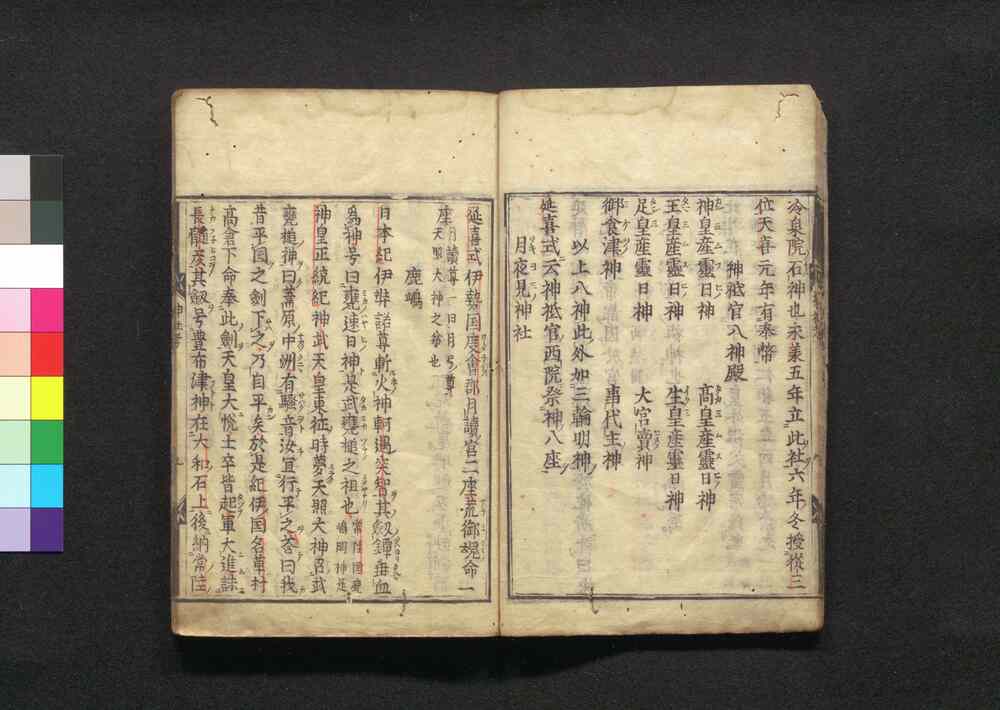 冷泉院石神也永萬五年立此社六年冬授從三
位天喜元年有奉幣
神祇官八神殿
神皇産靈日神 高皇産靈日神
王皇産靈日神 生皇産靈日神
足皇産靈日神 大宮賣神
御食津神 事代主神
以上八神此外如三輪明神
延喜式云神祇官西院祭神八座
月夜見神社
延喜式伊勢国度會郡月讀宮二座荒御魂命一
座月讀尊一日月弓尊
天照大神之弟也
鹿嶋
日本紀伊弉諾尊斬火神軻遇突智其劔鐔垂血
為神号曰甕速日神是武甕槌之祖也常陸国鹿
嶋同神是
神皇正統紀神武天皇東征時夢天照大神召武
甕槌神曰葦原中洲有騒音汝冝行平之荅曰我
昔平国之劍下之乃自平矣於是紀伊国名草村
高倉下命奉此劍天皇大悦士卒皆起軍大進誅
長髄彦其劔号豊布津神在大和石上後納常陸